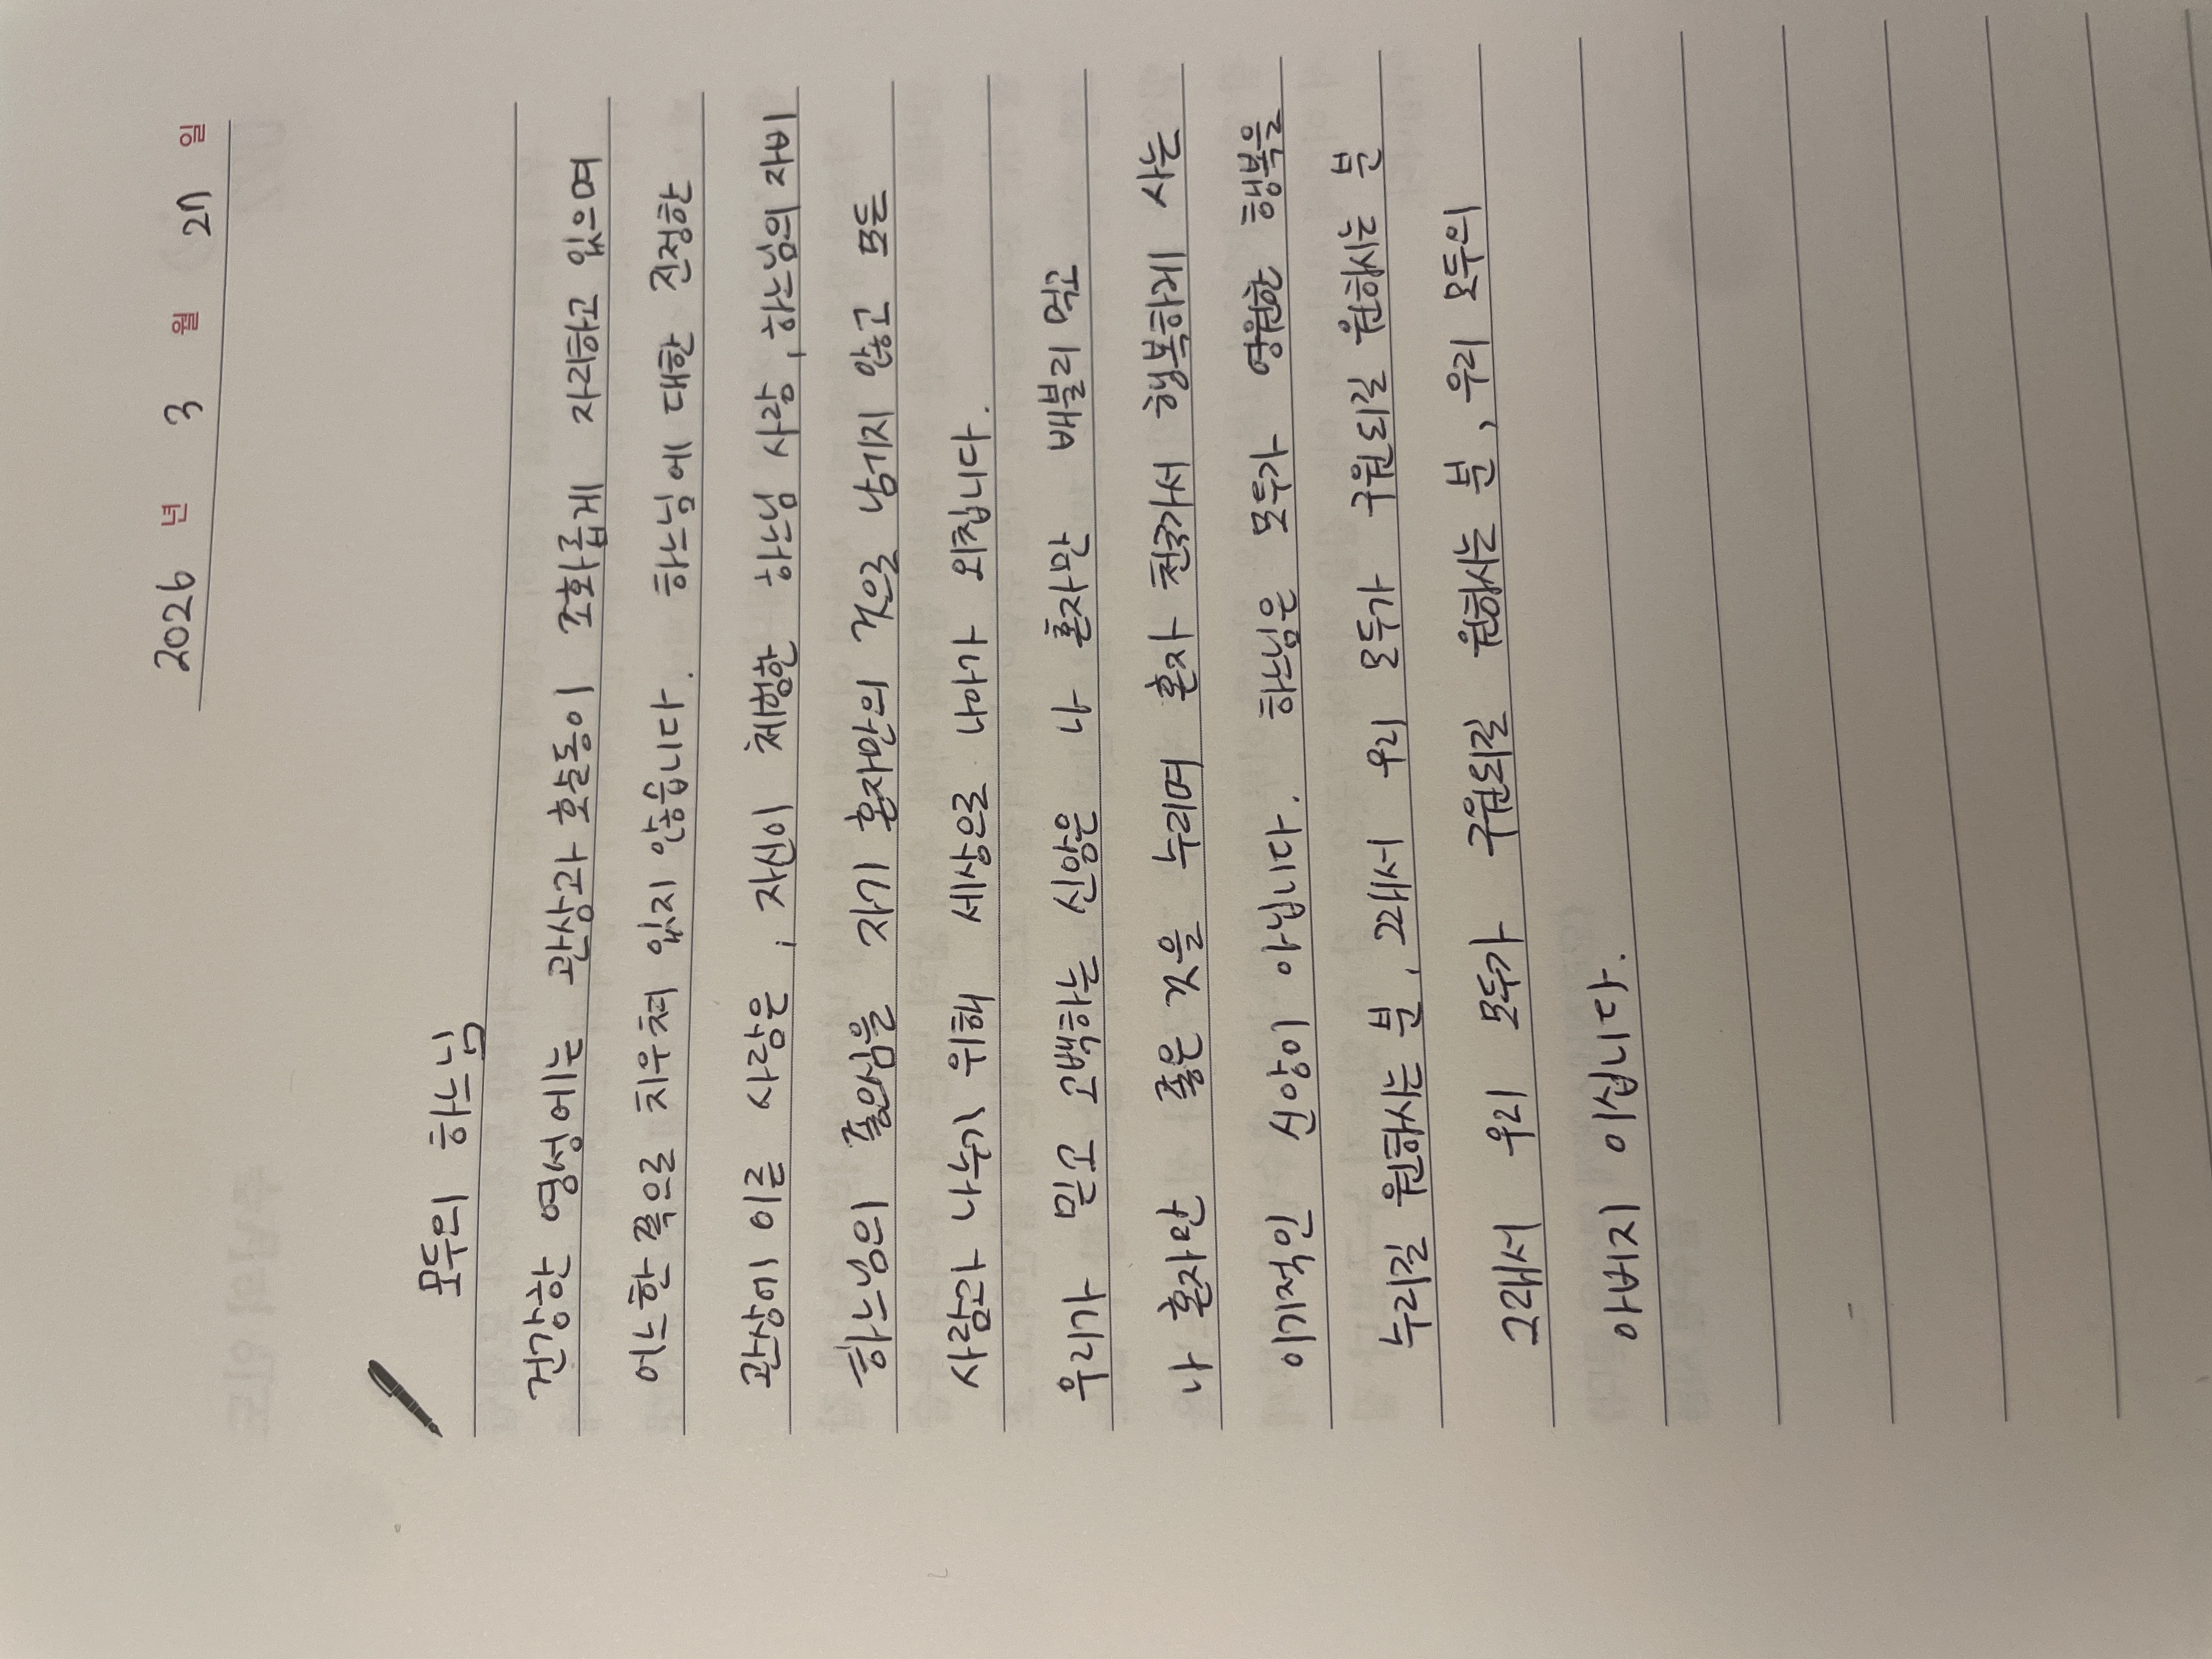 2026 년 3 월 27 일
모두의 하느님
건강한 영성에는 관상과 활동이 조화롭게 자리하고 있으며
어느한 쪽으로 치우쳐 있지 않습니다. 하느님에 대한 진정한
관상에 이른 사랑은, 자신이 체험한 하느님 사랑, 하느님의 자비
하느님의 좋으심을 자기 혼자만의 것으로 남기지 않고 모든
사람과 나누기 위해 세상으로 나아가 외칩니다.
우리가 믿고 고백하는 신앙은 나 혼자만 배불리 먹고
나 혼자만 좋은 것을 누리며 혼자 천국가서 행복하게 사는
이기적인 신앙이 아닙니다. 하느님은 모두가 영원한 행복을
누리길 원하시는 분, 그래서 우리 모두가 구원되길 원하시는 분
그래서 우리 모두가 구원되길 원하시는 분, 우리 모두의
아버지 이십니다.